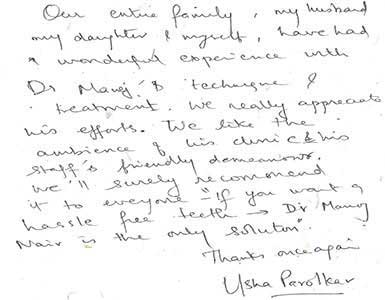 Our entire family, my husband
my daughter & myself, have had
a wonderful experience with
Dr Manoj's technique &
treatment. We really appreciate
his efforts. We like the
ambience of his clinic & his
staff's friendly demeanour.
We'll surely recommend
it to everyone - "If you want a
hassle free teeth → Dr Manoj
Nair is the only solution".
Thanks once again
Usha Parolkar